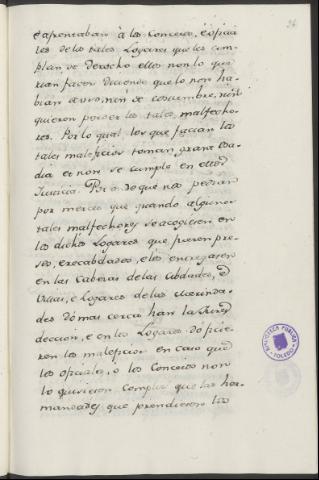 26
e afrontaban à los Concejos, è oficia
les de los tales Logares que les cum-
plan de Derecho ellos non lo que
rian facer diciendo que lo non ha-
bian de uso, nin de costumbre, nin
quieren prender los tales malfecho-
res. Por lo qual los que facian los
tales maleficios toman grant osa-
dia et non se cumple en ellos
Justicia. Por ende que nos pedian
por merced que quando algunos
tales malfechores se acogiesen en
los dichos Logares que fuesen pre-
sos, e recabdados, e los entregasen
en las Cabezas de las Cibdades, ò
Villas, e Logares de las Merinda-
des dó mas cerca han la Juris
deccion, e en los Logares dó ficie-
ren los maleficios en caso que
los oficiales, o los Concejos non
lo quisiesen complir que las her-
mandades que prendiesen los
BIBLIOTECA PUBLICA
TOLEDO